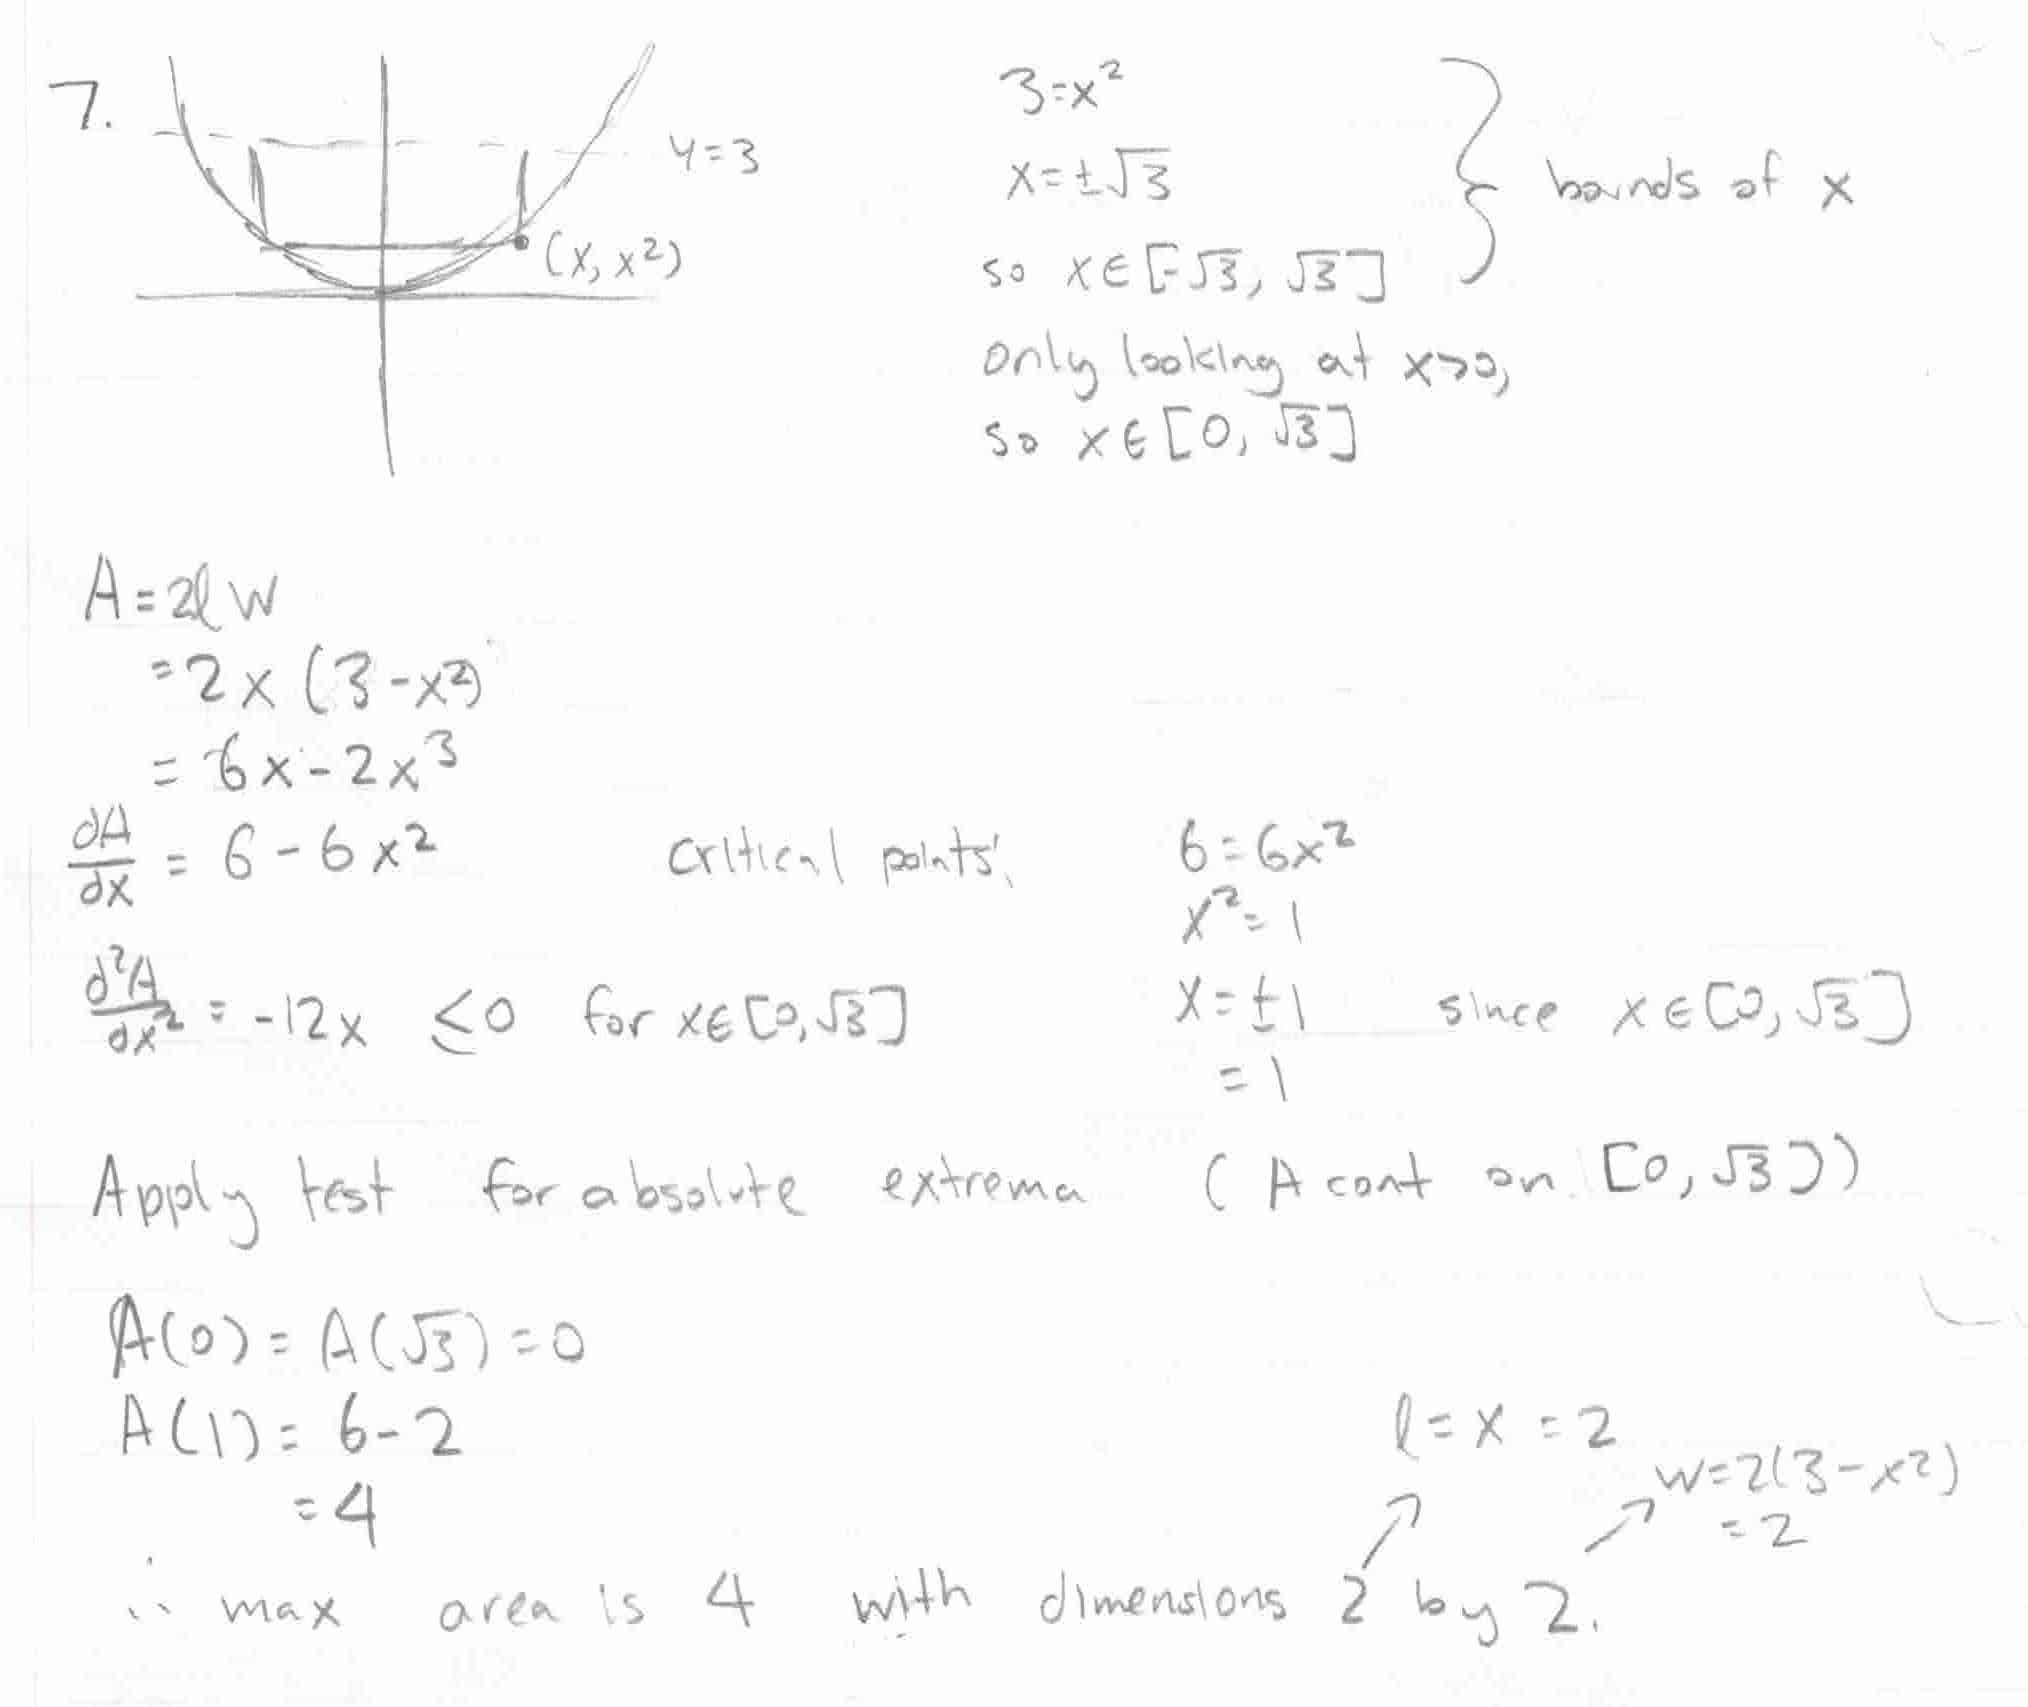 7.
y=3
(x, x²)
3=x²
x=±√3
so x∈[-√3, √3]
bounds of x
only looking at x>0,
so x∈[0, √3]
A=2lw
=2x(3-x²)
=6x-2x³
dA/dx = 6-6x²
critical points:
6=6x²
x²=1
x=±1 since x∈[0,√3]
=1
d²A/dx² = -12x ≤0 for x∈[0,√3]
Apply test for absolute extrema (A cont on [0,√3])
A(0)=A(√3)=0
A(1)=6-2
=4
l=x=2
w=2(3-x²)
=2
∴ max area is 4 with dimensions 2 by 2.